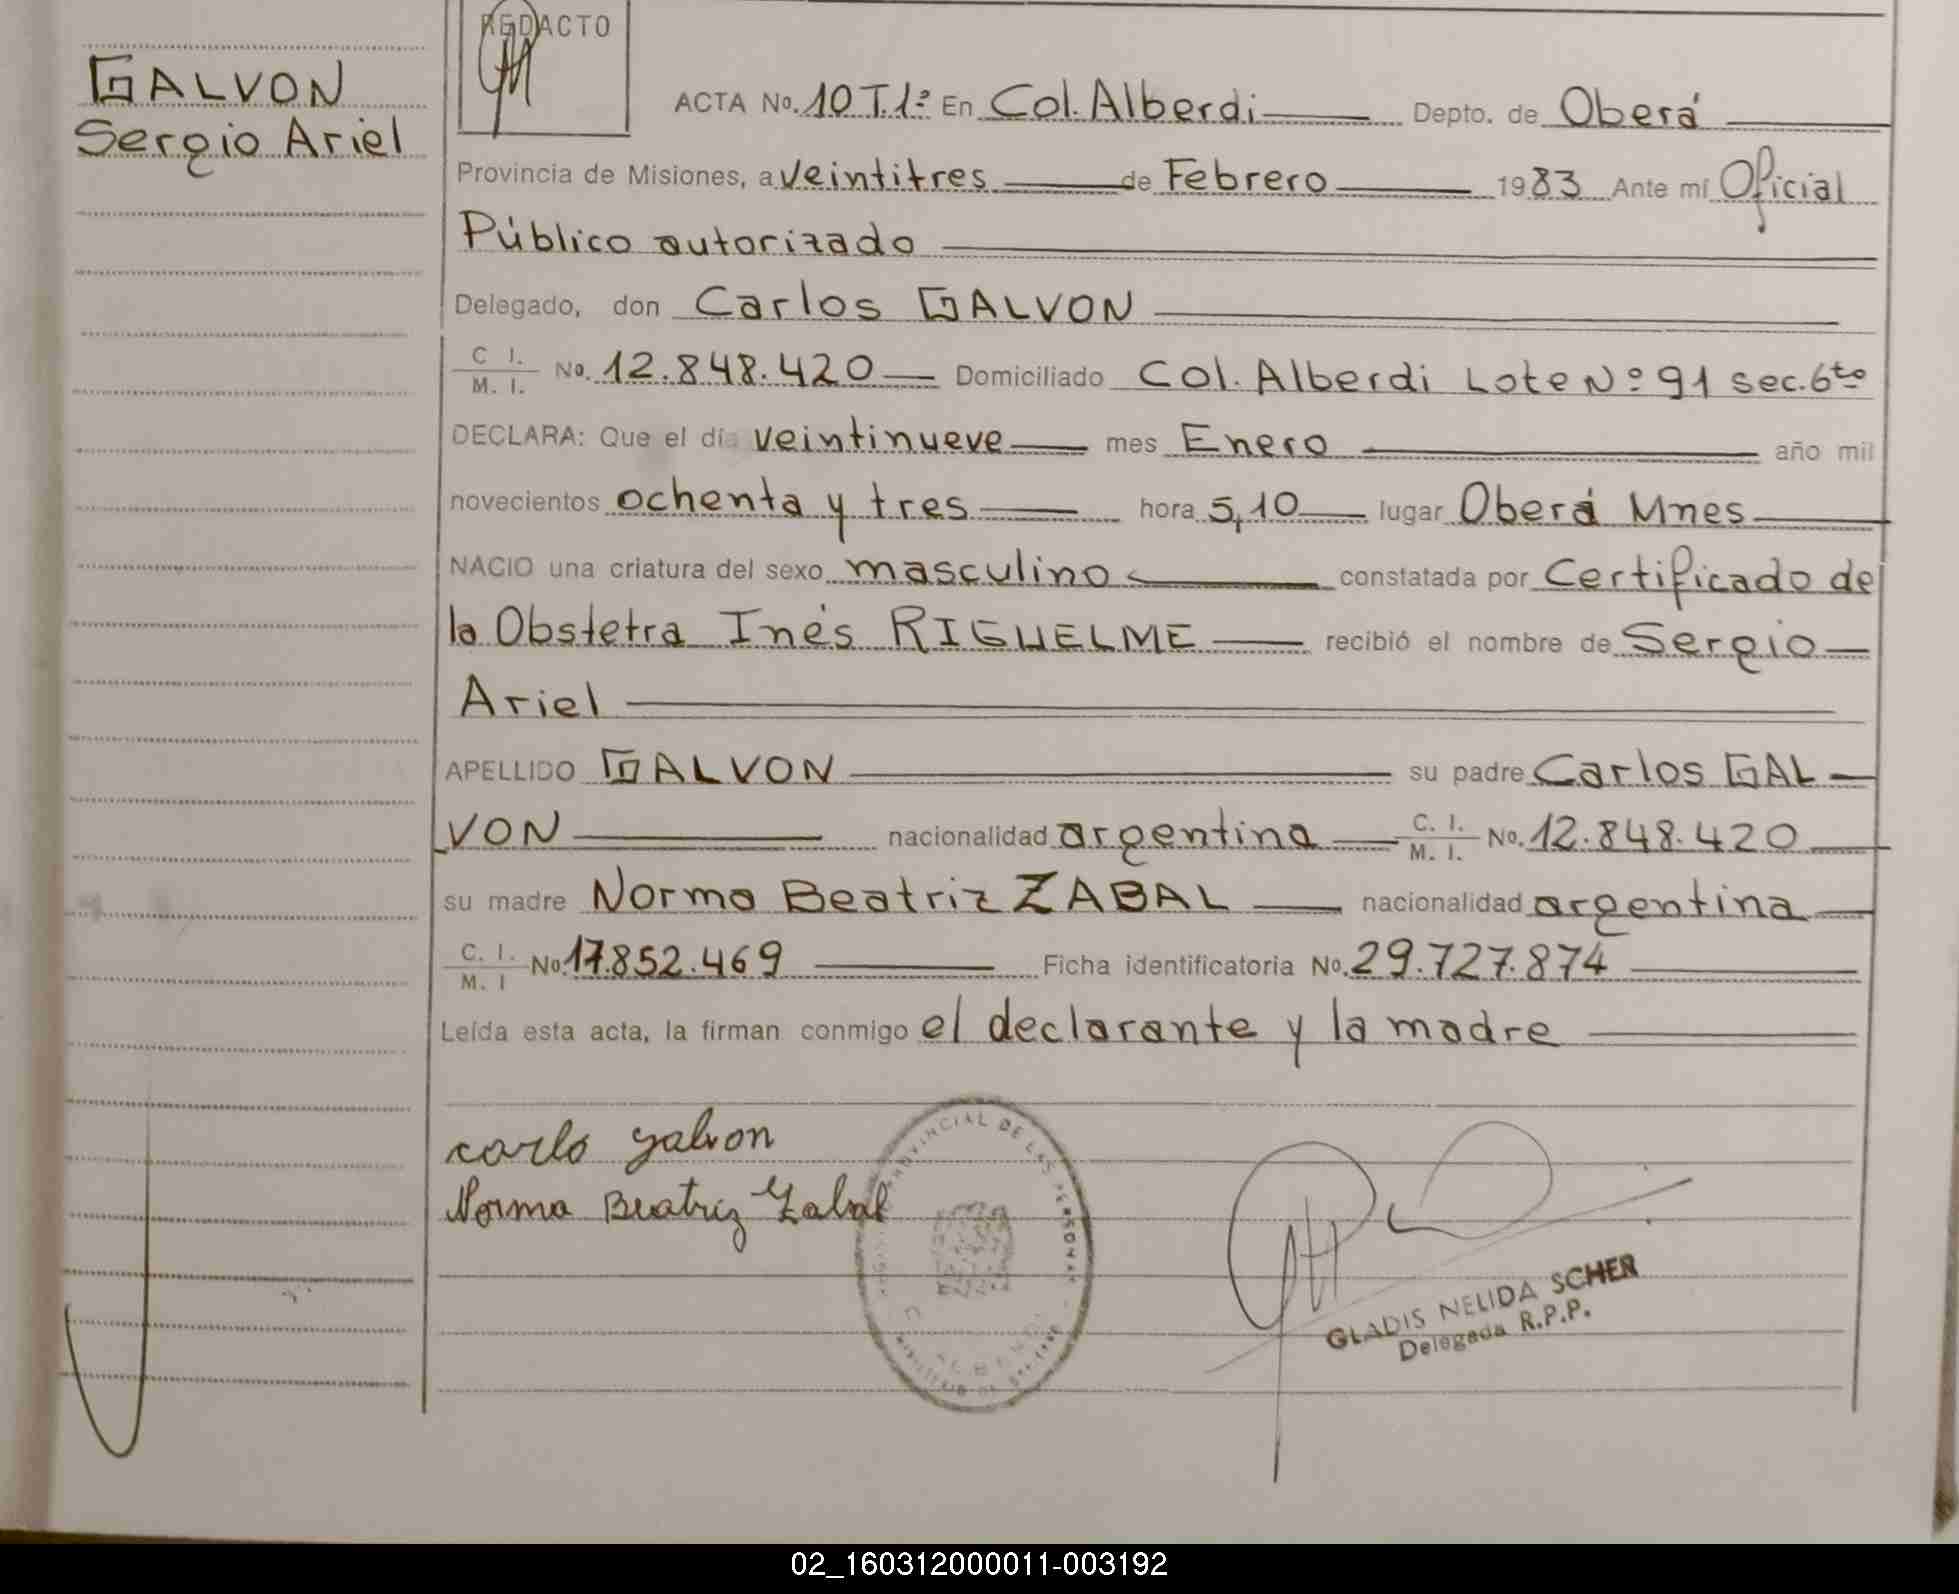 GALVON
Sergio Ariel
REDACTO
ACTA No. 10 T.1º En Col. Alberdi Depto. de Oberá
Provincia de Misiones, a veintitres de Febrero 1983 Ante mí Oficial
Público autorizado
Delegado, don Carlos GALVON
C I. M. I. No. 12.848.420 Domiciliado Col. Alberdi Lote Nº 91 sec. 6to
DECLARA: Que el día veintinueve mes Enero año mil
novecientos ochenta y tres hora 5,10 lugar Oberá Mnes
NACIO una criatura del sexo masculino constatada por Certificado de
la Obstetra Inés RIGUELME recibió el nombre de Sergio
Ariel
APELLIDO GALVON su padre Carlos GAL
VON nacionalidad argentina C. I. M. I. No. 12.848.420
su madre Norma Beatriz ZABAL nacionalidad argentina
C. I. M. I No. 17.852.469 Ficha identificatoria No. 29.727.874
Leída esta acta, la firman conmigo el declarante y la madre
carlo galvon
Norma Beatriz Zabal
PROVINCIAL DE LAS PERSONAS
GLADIS NELIDA SCHER
Delegada R.P.P.
02_160312000011-003192